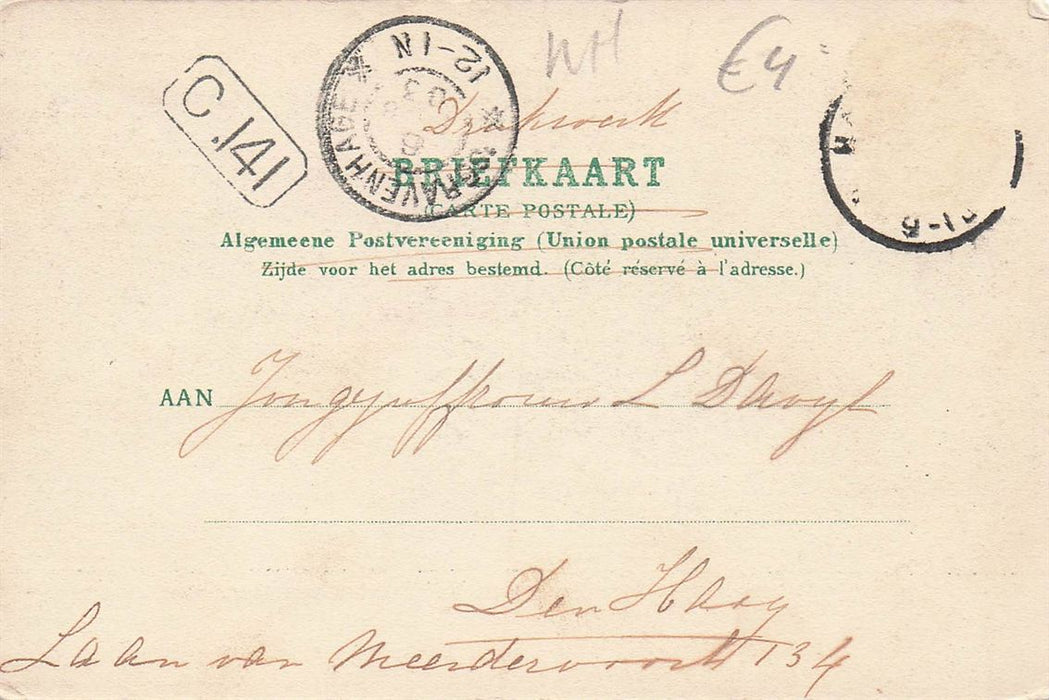 C.141
'SGRAVENHAGE
12-1N
€4
Drukwerk
BRIEFKAART
(CARTE POSTALE)
Algemeene Postvereeniging (Union postale universelle)
Zijde voor het adres bestemd. (Côté réservé à l'adresse.)
AAN Jongejuffrouw L
Den Haag
Laan van Meerdervoort 134